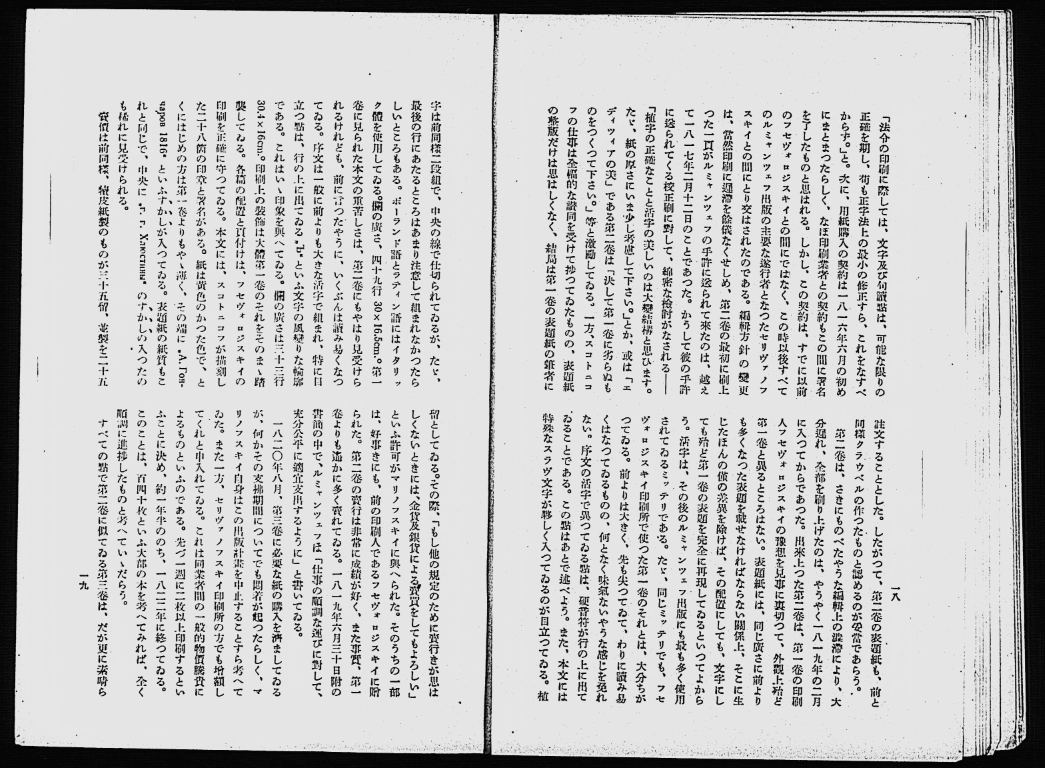 「法令の印刷に際しては、文字及び句讀點は、可能な限りの
正確を期し、苟も正字法上の最小の修正すら、これをなすべ
からず。」と。次に、用紙購入の契約は一八一六年六月の初め
にまとまつたらしく、なほ印刷業者との契約もこの間に署名
を了したものと思はれる。しかし、この契約は、すでに以前
のフセヴォロジスキイとの間にではなく、この時以後すべて
のルミャンツェフ出版の主要な遂行者となつたセリヴァノフ
スキイとの間にとり交はされたのである。編輯方針の變更
は、當然印刷に遲滯を餘儀なくせしめ、第二卷の最初に刷上
つた一頁がルミャンツェフの手許に送られて來たのは、越え
て一八一七年二月十二日のことであつた。かうして彼の手許
に送られてくる校正刷に對して、綿密な檢討がなされる――
「植字の正確なことと活字の美しいのは大變結構と思ひます。
たゞ、紙の厚さにいま少し考慮して下さい。」とか、或は「エ
ディツィアの美」である第二卷は「決して第一卷に劣らぬも
のをつくつて下さい。」等と激勵してゐる。一方、スコトニコ
フの仕事は全幅的な讃同を受けて捗つてゐたものの、表題紙
の整版だけは思はしくなく、結局は第一卷の表題紙の筆者に
註文することとした。したがつて、第二卷の表題紙も、前と
同樣クラウベルの作つたものと認めるのが妥當であらう。
第二卷は、さきにものべたやうな編輯上の澁滯により、大
分遲れ、全部を刷り上げたのは、やうやく一八一九年の二月
に入つてからであつた。出來上つた第二卷は、第一卷の印刷
人フセヴォロジスキイの豫想を見事に裏切つて、外觀上殆ど
第一卷と異るところはない。表題紙には、同じ廣さに前より
も多くなつた表題を載せなければならない關係上、そこに生
じたほんの僅の差異を除けば、その配置にしても、文字にし
ても殆ど第一卷の表題を完全に再現してゐるといつてよから
う。活字は、その後のルミャンツェフ出版にも最も多く使用
されてゐるミッテリである。たゞ、同じミッテリでも、フセ
ヴォロジスキイ印刷所で使つた第一卷のそれとは、大分ちが
つてゐる。前よりは大きく、先も尖つてゐて、わりに讀み易
くはなつてゐるものの、何となく味氣ないやうな感じを免れ
ない。序文の活字で異つてゐる點は、硬音符が行の上に出て
ゐることである。この點はあとで述べよう。また、本文には
特殊なスラヴ文字が夥しく入つてゐるのが目立つてゐる。植
一八
字は前同樣二段組で、中央の線で仕切られてゐるが、たゞ、
最後の行にあたるところはあまり注意して組まれなかつたら
しいところもある。ポーランド語とラティン語にはイタリッ
ク體を使用してゐる。欄の廣さ、四十九行 30×16.5cm。第一
卷に見られた本文の重苦しさは、第二卷にもやはり見受けら
れるけれども、前に言つたやうに、いくぶんは讀み易くなつ
てゐる。序文は一般に前よりも大きな活字で組まれ、特に目
立つ點は、行の上に出てゐる "Ъ" といふ文字の風變りな輪廓
である。これはいゝ印象を與へてゐる。欄の廣さは三十三行
30.4×16cm。印刷上の裝飾は大體第一卷のそれをそのまゝ踏
襲してゐる。各篇の配置と頁付けは、フセヴォロジスキイの
印刷を正確に守つてゐる。本文には、スコトニコフが描刻し
た二十八箇の印章と署名がある。紙は黄色のかつた色で、と
くにはじめの方は第一卷よりもやゝ薄く、その端に „А. Гон-
чаров 1816" といふすかしが入つてゐる。表題紙の紙質もこ
れと同じで、中央に „Г. Г. Хлюстины" のすかしの入つたの
も稀れに見受けられる。
賣價は前同樣、犢皮紙製のものが三十五留、並製を二十五
留としてゐる。その際、「もし他の規定のために賣行きが思は
しくないときには、金貨及銀貨による賣買をしてもよろしい」
といふ許可がマリノフスキイに與へられた。そのうちの一部
は、好事きにも、前の印刷人であるフセヴォロジスキイに贈
られた。第二卷の賣行は非常に成績が好く、また事實、第一
卷よりも遙かに多く賣れてゐる。一八一九年六月三十日附の
書簡の中で、ルミャンツェフは「仕事の順調な運びに對して、
充分公平に適宜支出するように」と書いてゐる。
一八二〇年八月、第三卷に必要な紙の購入を濟ましてゐる
が、何かその支拂期間についてでも悶着が起つたらしく、マ
リノフスキイ自身はこの出版計畫を中止することすら考へて
ゐた。また一方、セリヴァノフスキイ印刷所の方でも增額し
てくれと申入れてゐる。これは同業者間の一般的物價騰貴に
よるものといふのである。先づ一週に二枚以上印刷するとい
ふことに決め、約一年半ののち、一八二二年に終つてゐる。
このことは、百四十枚といふ大部の本を考へてみれば、全く
順調に進捗したものと考へていゝだらう。
すべての點で第二卷に似てゐる第三卷は、だが更に素晴ら
一九